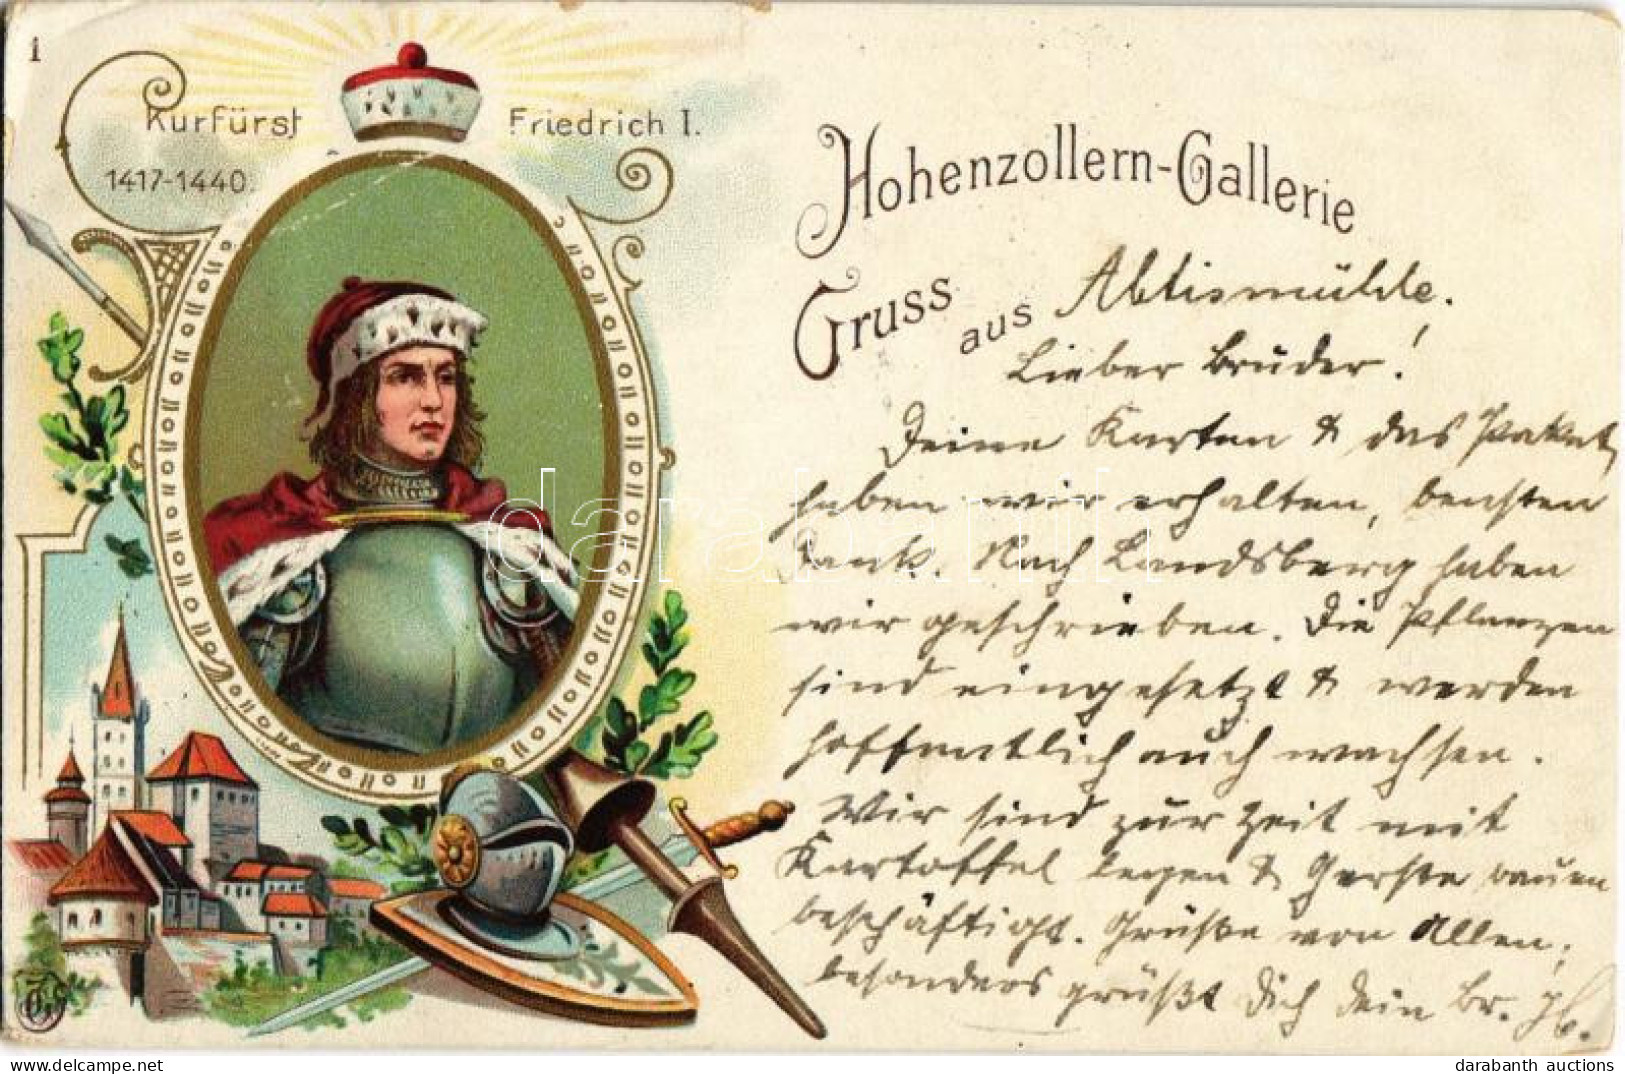 1
Kurfürst Friedrich I.
1417-1440.
Hohenzollern-Gallerie
Gruss aus
Lieber Bruder!
Deine Karten & das Paket
haben wir erhalten, besten
Dank. Nach Landsberg haben
wir geschrieben. Die Pflanzen
sind eingesetzt & werden
hoffentlich auch wachsen.
Wir sind zur Zeit mit
Kartoffel legen & Gerste bauen
beschäftigt. Grüße von Allen,
besonders grüßt Dich Dein Br.
darabanth
darabanth auctions